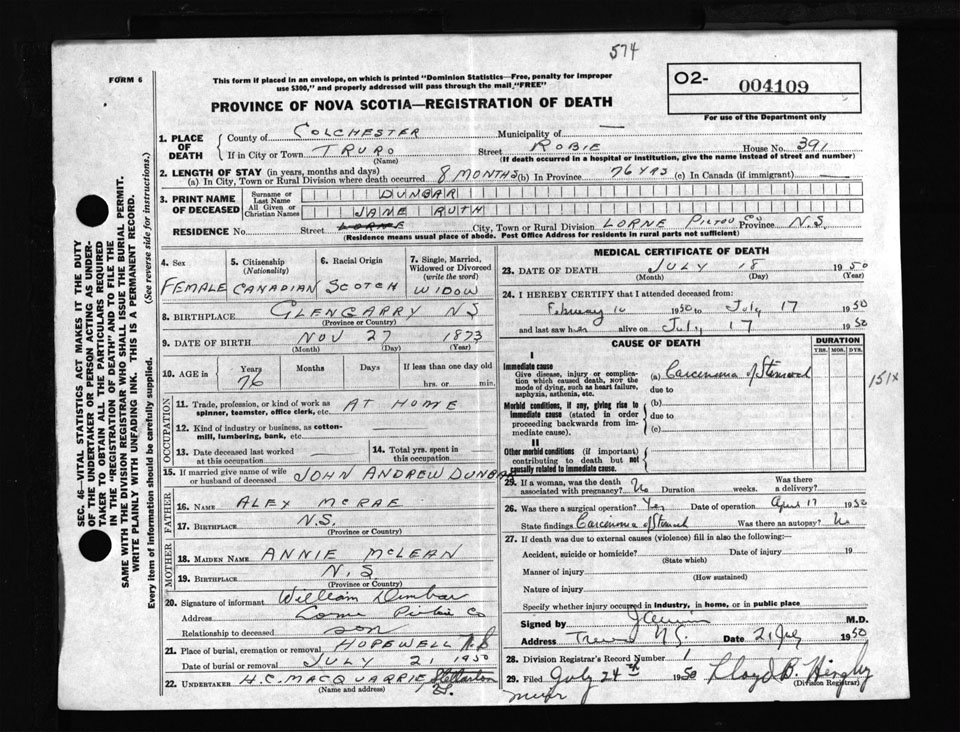 574
FORM 6
This form if placed in an envelope, on which is printed "Dominion Statistics—Free, penalty for improper
use $300," and properly addressed will pass through the mail, "FREE"
O2- 004109
For use of the Department only
PROVINCE OF NOVA SCOTIA—REGISTRATION OF DEATH
SEC. 46—VITAL STATISTICS ACT MAKES IT THE DUTY
OF THE UNDERTAKER OR PERSON ACTING AS UNDER-
TAKER TO OBTAIN ALL THE PARTICULARS REQUIRED
IN THE "REGISTRATION OF DEATH" AND TO FILE THE
SAME WITH THE DIVISION REGISTRAR WHO SHALL ISSUE THE BURIAL PERMIT.
WRITE PLAINLY WITH UNFADING INK. THIS IS A PERMANENT RECORD.
Every item of information should be carefully supplied. (See reverse side for instructions.)
1. PLACE OF DEATH
County of COLCHESTER Municipality of —
If in City or Town TRURO Street ROBIE House No. 391
(Name) (If death occurred in a hospital or institution, give the name instead of street and number)
2. LENGTH OF STAY (in years, months and days)
(a) In City, Town or Rural Division where death occurred 8 MONTHS (b) In Province 76 YRS (c) In Canada (if immigrant) —
3. PRINT NAME OF DECEASED
Surname or Last Name DUNBAR
All Given or Christian Names JANE RUTH
RESIDENCE No. Street LORNE City, Town or Rural Division LORNE PICTOU CO Province N.S.
(Residence means usual place of abode. Post Office Address for residents in rural parts not sufficient)
4. Sex FEMALE
5. Citizenship (Nationality) CANADIAN
6. Racial Origin SCOTCH
7. Single, Married, Widowed or Divorced (write the word) WIDOW
8. BIRTHPLACE GLENGARRY NS
(Province or Country)
9. DATE OF BIRTH NOV 27 1873
(Month) (Day) (Year)
10. AGE in Years 76 Months Days If less than one day old
hrs. or min.
OCCUPATION
11. Trade, profession, or kind of work as
spinner, teamster, office clerk, etc. AT HOME
12. Kind of industry or business, as cotton-
mill, lumbering, bank, etc.
13. Date deceased last worked at this occupation —
14. Total yrs. spent in this occupation —
15. If married give name of wife
or husband of deceased JOHN ANDREW DUNBAR
FATHER
16. NAME ALEX MCRAE
17. BIRTHPLACE N.S.
MOTHER
18. MAIDEN NAME ANNIE MCLEAN
19. BIRTHPLACE N.S.
(Province or Country)
20. Signature of informant William Dunbar
Address Lorne Pictou Co
Relationship to deceased son
21. Place of burial, cremation or removal HOPEWELL N.S
Date of burial or removal JULY 21, 1950
22. UNDERTAKER H.C. MACQUARRIE Stellarton
(Name and address)
MEDICAL CERTIFICATE OF DEATH
23. DATE OF DEATH JULY 18 1950
(Month) (Day)
24. I HEREBY CERTIFY that I attended deceased from:
February 10 1950 to July 17 1950
and last saw her alive on July 17 1950
CAUSE OF DEATH
DURATION
YRS. MOS. DYS.
I
Immediate cause
Give disease, injury or compli-
cation which caused death, NOT the
mode of dying, such as heart failure,
asphyxia, asthenia, etc.
(a) Carcinoma of Stomach
due to
151x
Morbid conditions, if any, giving rise to
immediate cause (stated in order
proceeding backwards from im-
mediate cause).
(b)
due to
(c)
II
Other morbid conditions (if important)
contributing to death but not
causally related to immediate cause.
25. If a woman, was the death
associated with pregnancy? No Duration weeks. Was there a delivery?
26. Was there a surgical operation? Yes Date of operation April 17 1950
State findings Carcinoma of Stomach Was there an autopsy? No
27. If death was due to external causes (violence) fill in also the following:—
Accident, suicide or homicide? Date of injury 19
(State which)
Manner of injury
(How sustained)
Nature of injury
Specify whether injury occurred in industry, in home, or in public place
Signed by M.D.
Address Truro N.S. Date 21 July 1950
28. Division Registrar's Record Number 1
29. Filed July 24th 1950 Lloyd B.
(Division Registrar)